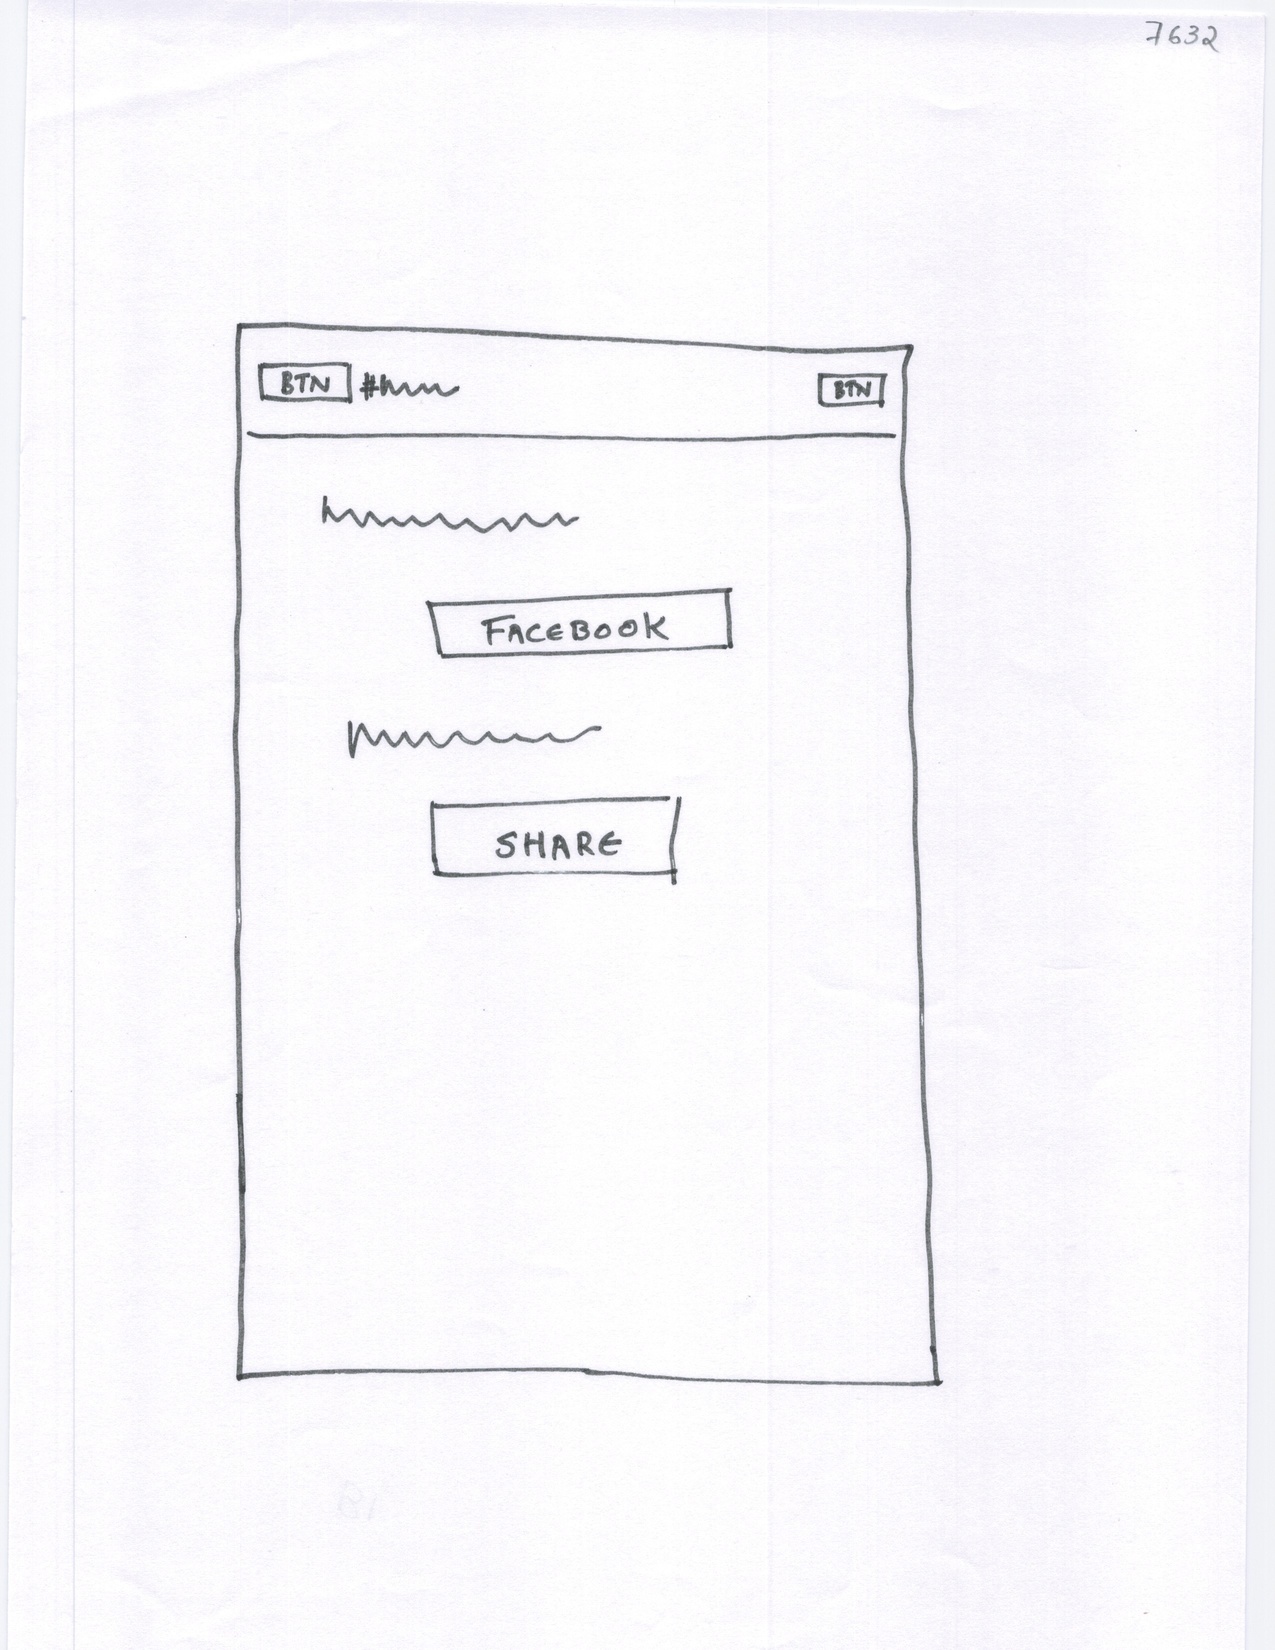 7632
BTN # BTN
FACEBOOK
SHARE